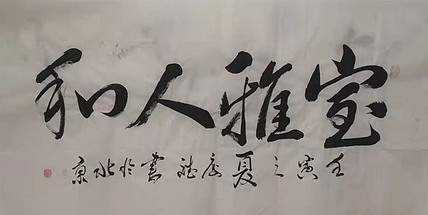 室雅人和
壬寅之夏書於北京